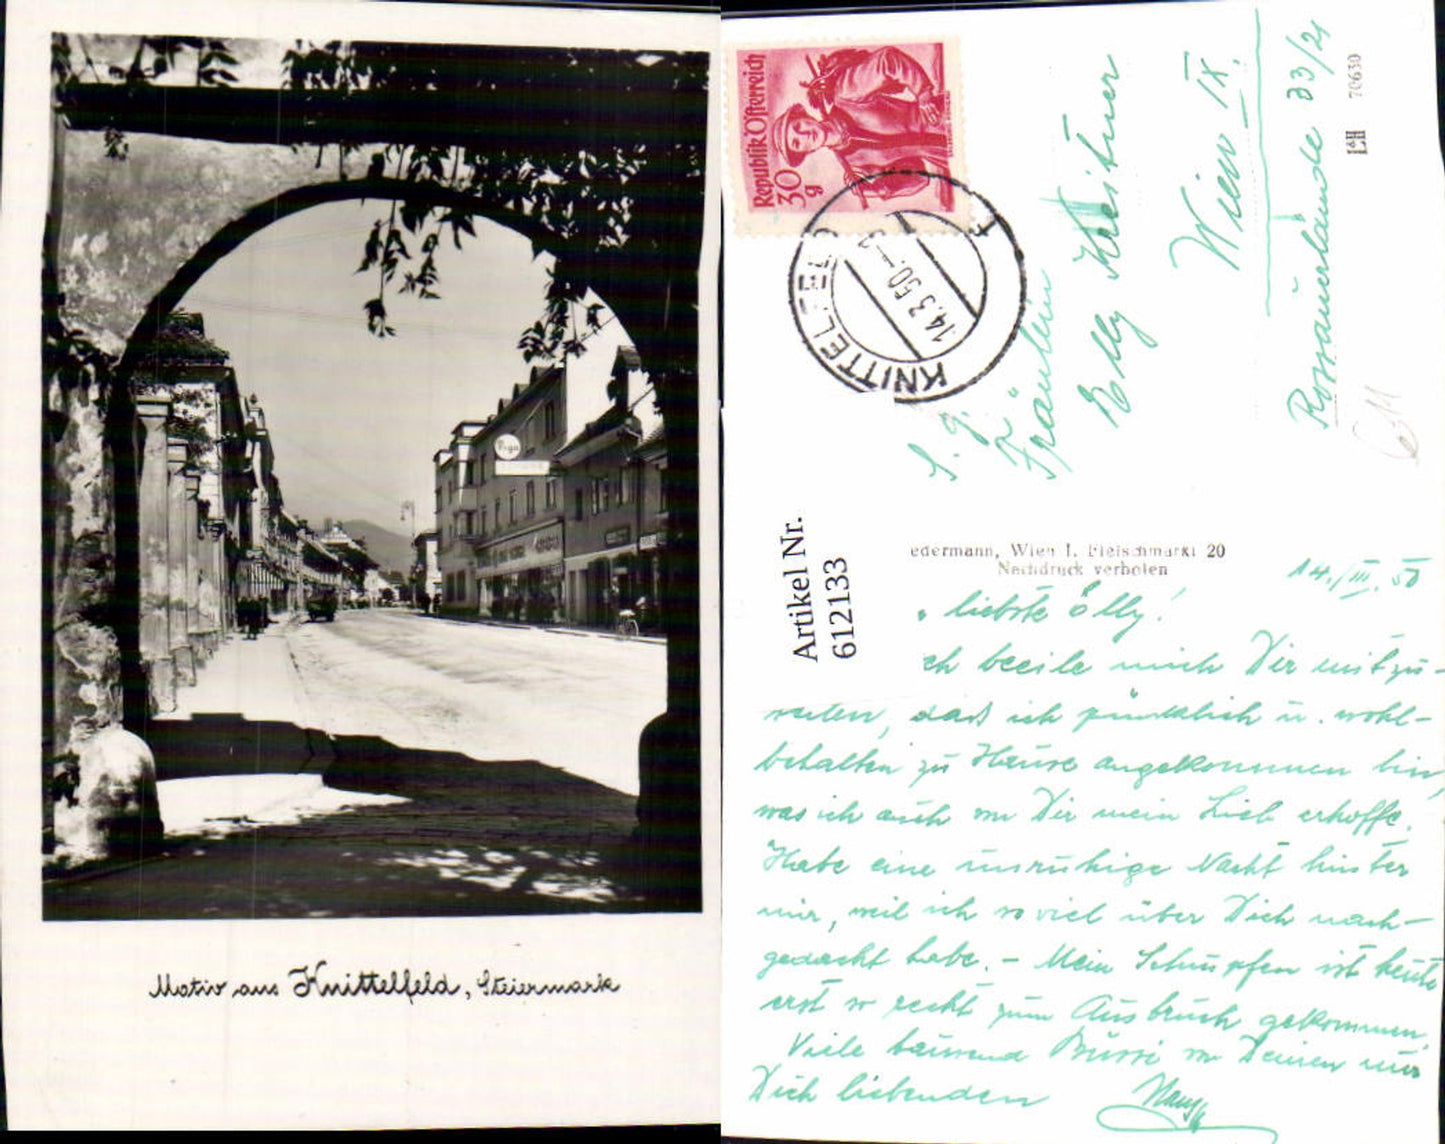 Persil
Motiv aus Knittelfeld, Steiermark
Republik Österreich
30 g
KNITTELFELD
14.3.50.
S. g.
Fräulein
Elly Kreitner
Wien IX.
Rossauerlände 33/21
L&H 70630
Artikel Nr.
612133
edermann, Wien I. Fleischmarkt 20
Nachdruck verboten
14./III. 50
liebste Elly!
ch beeile mich Dir mitzu-
teilen, daß ich pünktlich u. wohl-
behalten zu Hause angekommen bin,
was ich auch von Dir mein Lieb erhoffe.
Habe eine unruhige Nacht hinter
mir, weil ich so viel über Dich nach-
gedacht habe. – Mein Schnupfen ist heute
erst so recht zum Ausbruch gekommen.
Viele tausend Bussi von Deinen nur
Dich liebenden